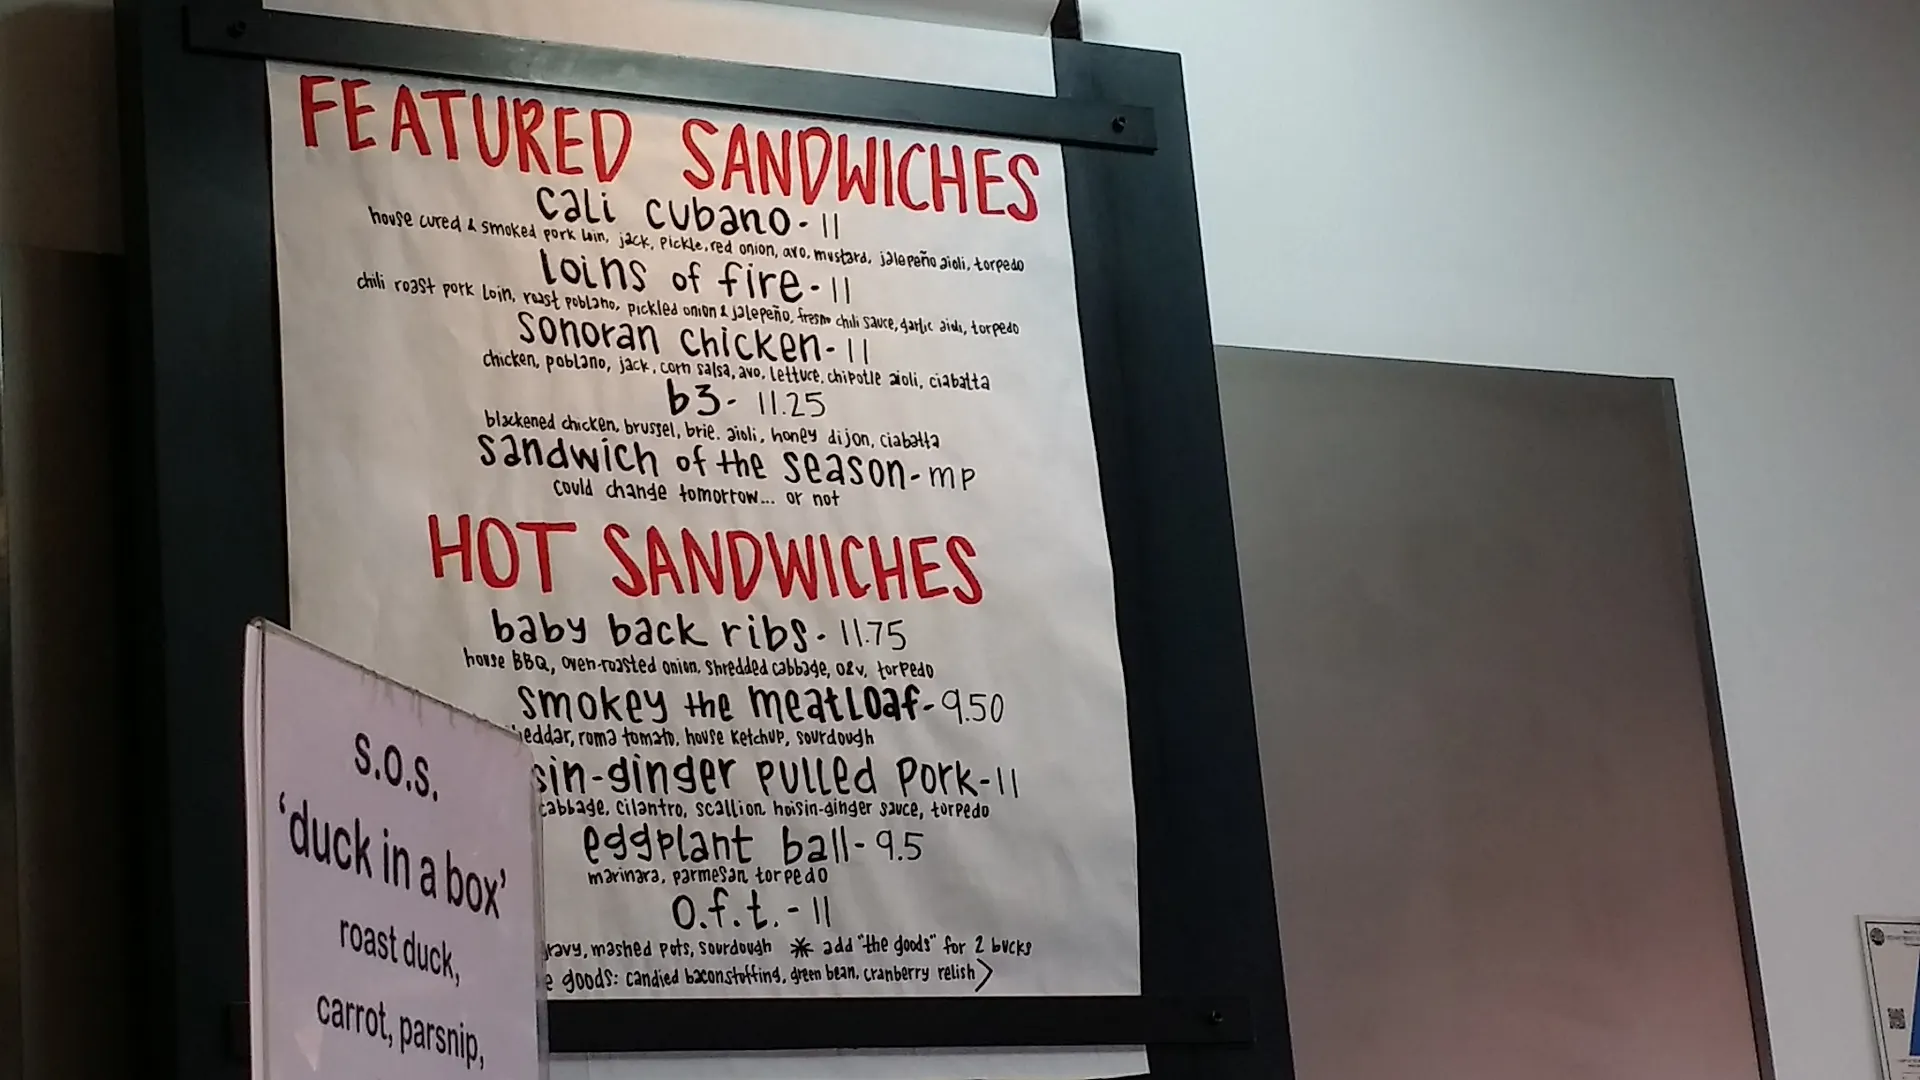 FEATURED SANDWICHES
cali cubano - 11
house cured & smoked pork loin, jack, pickle, red onion, avo, mustard, jalepeño aioli, torpedo
loins of fire - 11
chili roast pork loin, roast poblano, pickled onion & jalepeño, fresno chili sauce, garlic aioli, torpedo
sonoran chicken - 11
chicken, poblano, jack, corn salsa, avo, lettuce, chipotle aioli, ciabatta
b3 - 11.25
blackened chicken, brussel, brie, aioli, honey dijon, ciabatta
sandwich of the season - mp
could change tomorrow... or not
HOT SANDWICHES
baby back ribs - 11.75
house BBQ, oven-roasted onion, shredded cabbage, o&v, torpedo
smokey the meatloaf - 9.50
eddar, roma tomato, house ketchup, sourdough
sin-ginger pulled pork - 11
cabbage, cilantro, scallion, hoisin-ginger sauce, torpedo
eggplant ball - 9.5
marinara, parmesan, torpedo
o.f.t. - 11
ravy, mashed pots, sourdough * add "the goods" for 2 bucks
e goods: candied bacon stuffing, green bean, cranberry relish >
s.o.s.
'duck in a box'
roast duck,
carrot, parsnip,